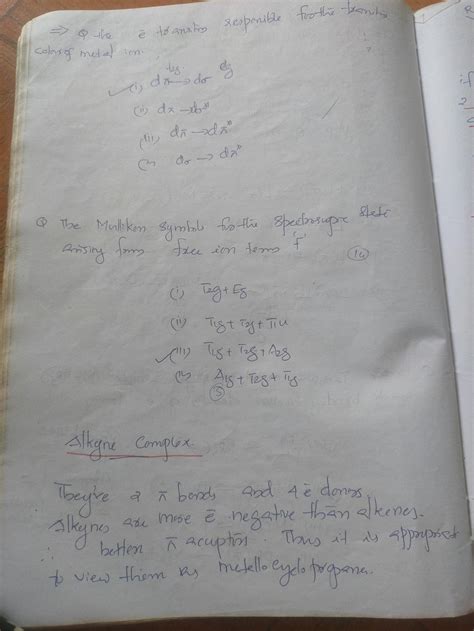 ⇒ Q the ē transition responsible for the
colors of metal ion.
t₂g eg
✓(i) dπ → dσ
(ii) dπ → σ*
(iii) dπ → dπ*
(iv) dσ → dπ*
Q The Mulliken symbols for the spectroscopic state
arising from free ion term 'F'
(i) T₂g + Eg
(ii) T₁g + T₂g + T₁u
✓(iii) T₁g + T₂g + A₂g
(iv) A₁g + T₂g + T₁g
Alkyne Complex
They've 2 π bonds and 4 ē donors
Alkynes are more ē negative than alkenes.
∴ better π acceptors. Thus it is
to view them as